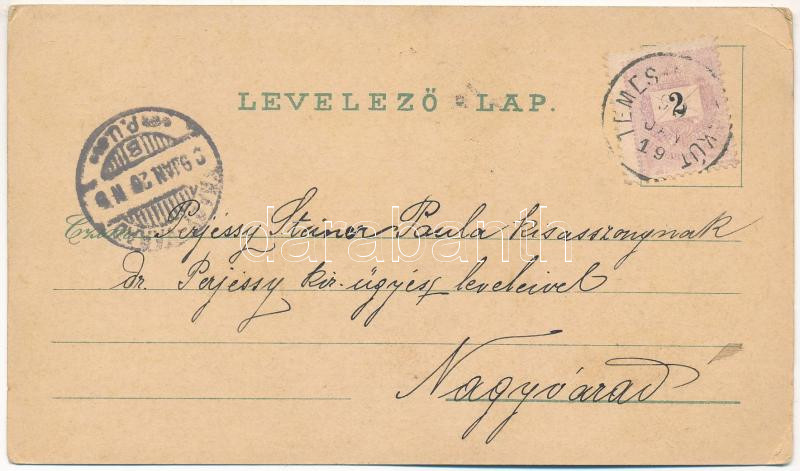 LEVELEZŐ LAP.
2
TEMES KÚT
JAN
19
99 JAN 20 N
B
P.U.
Perjéssy Steiner Paula kisasszonynak
dr. Perjéssy kir. ügyész leveleivel
Nagyvárad
darabanth